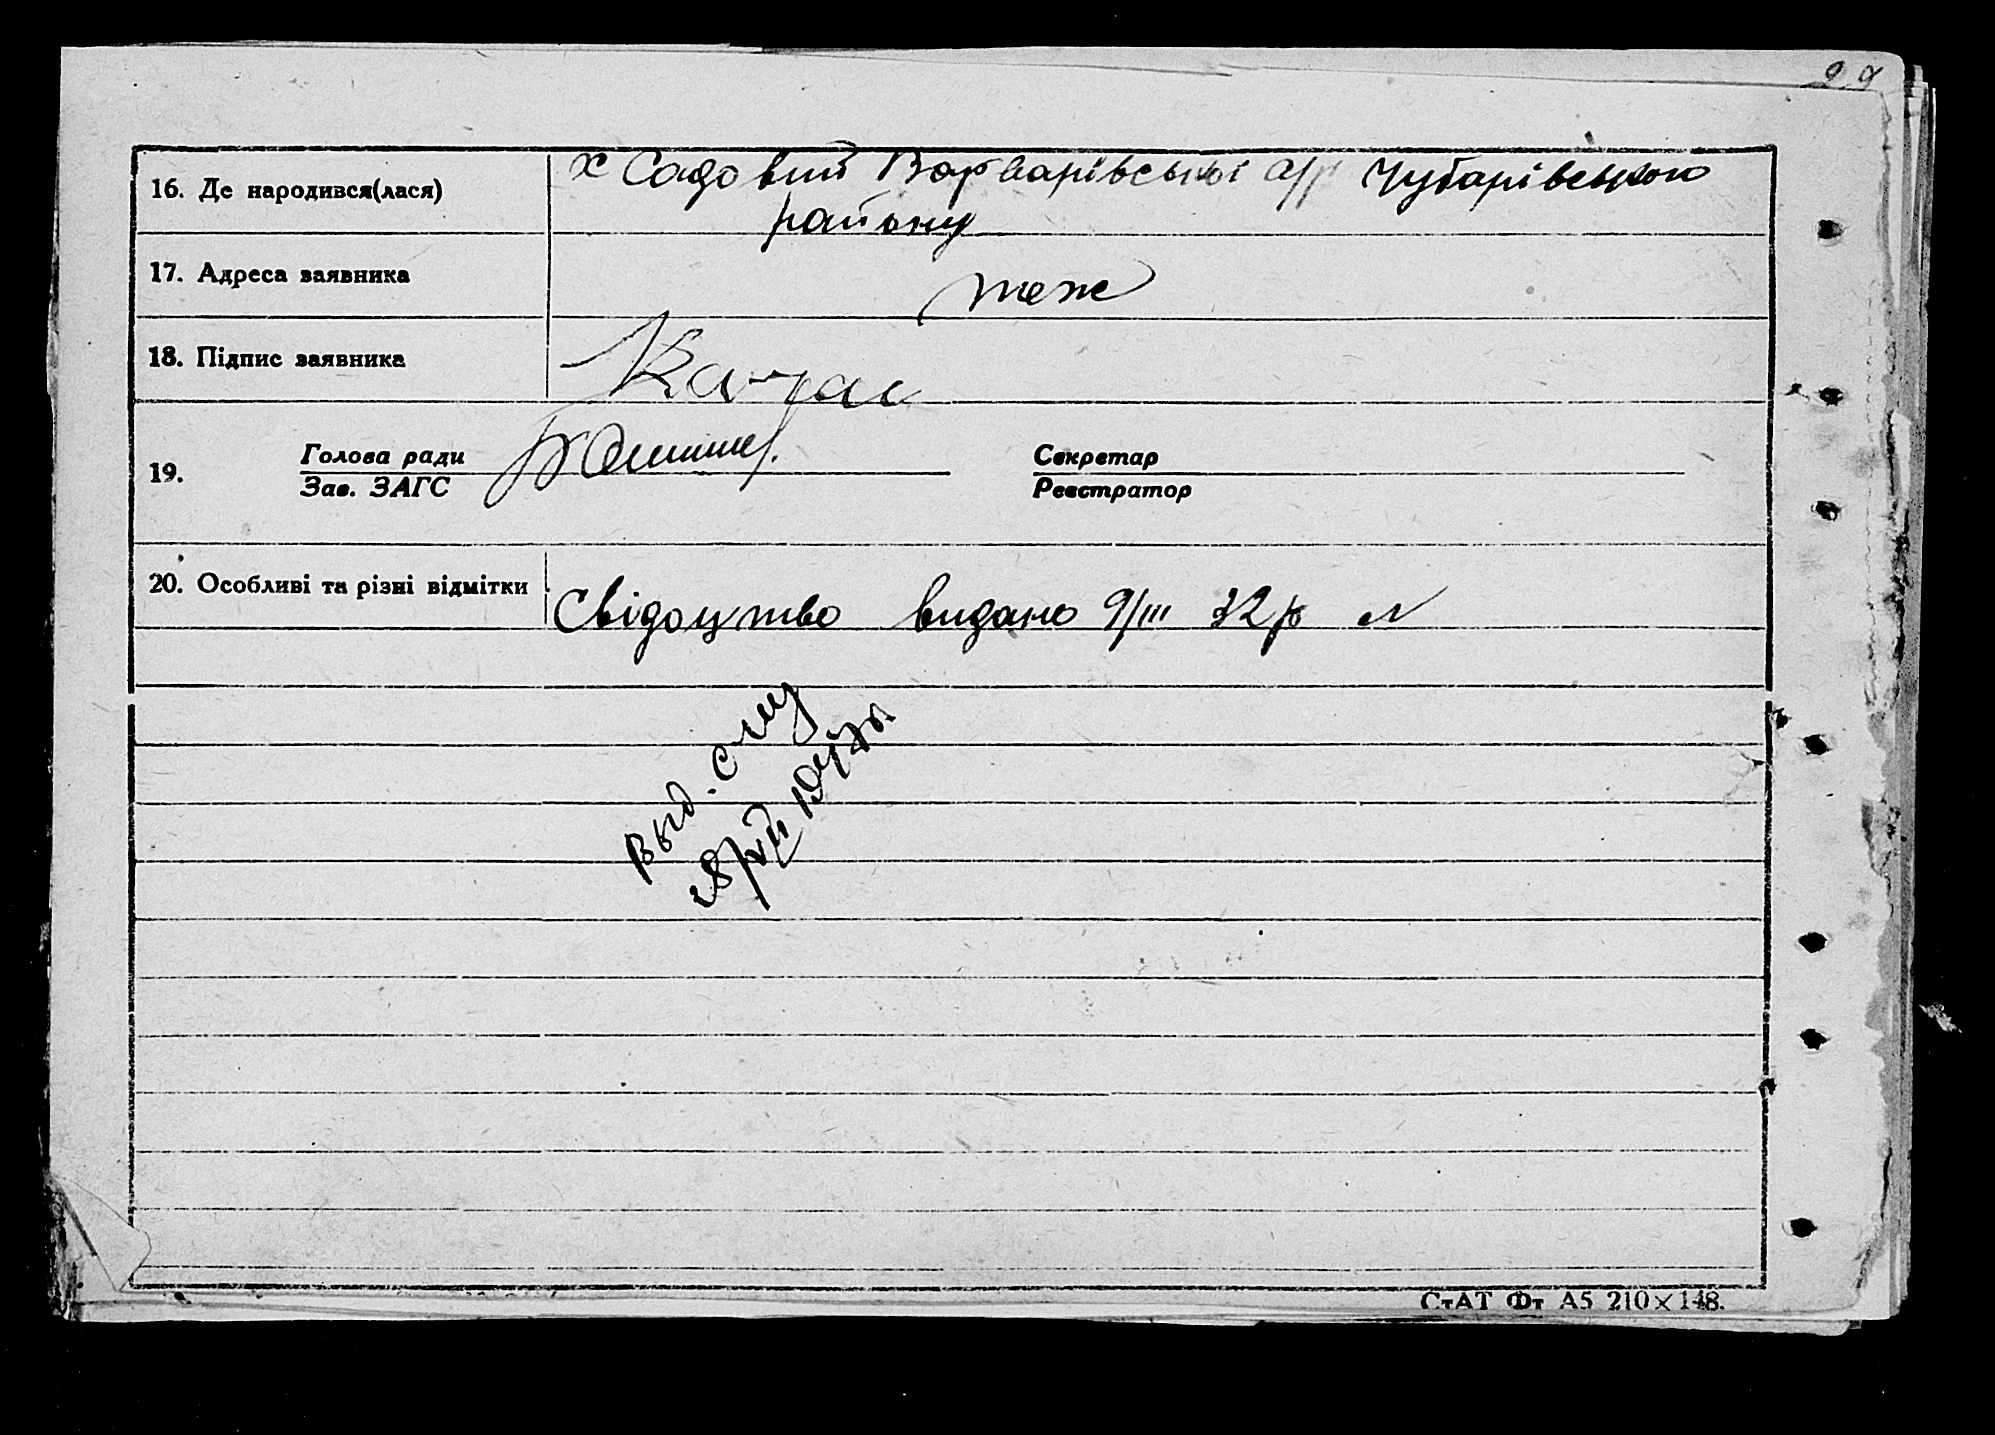 29
16. Де народився(лася) х Садовий Варварівської с/р Чубарівського
району
17. Адреса заявника теж
18. Підпис заявника
19. Голова ради
Зав. ЗАГС
Секретар
Реєстратор
20. Особливі та різні відмітки Свідоцтво видано 9/III 32 р №
Выд.
СтАТ Фт А5 210×148.